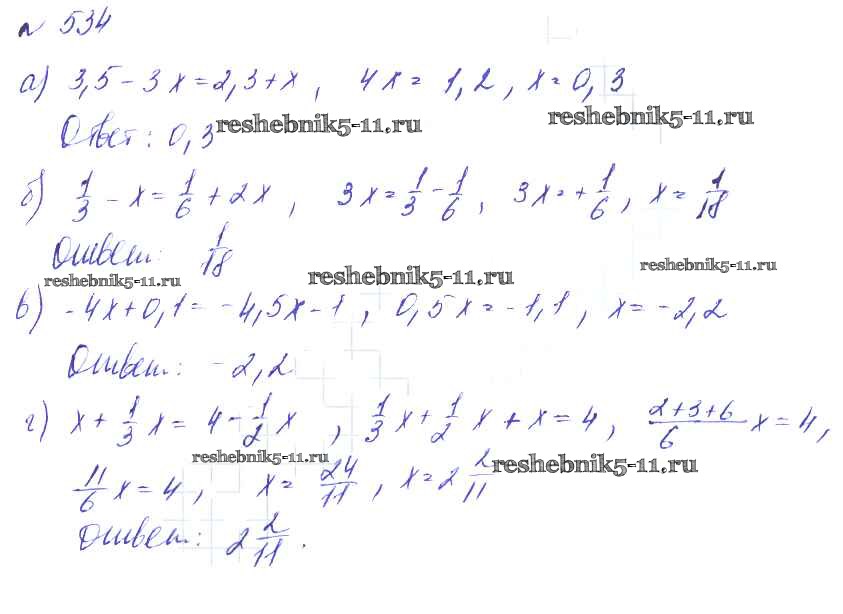 № 534
а) 3,5 - 3x = 2,3 + x, 4x = 1,2, x = 0,3
Ответ: 0,3 reshebnik5-11.ru reshebnik5-11.ru
б) 1/3 - x = 1/6 + 2x, 3x = 1/3 - 1/6, 3x = + 1/6, x = 1/18
Ответ: 1/18
reshebnik5-11.ru reshebnik5-11.ru reshebnik5-11.ru
в) -4x + 0,1 = -4,5x - 1, 0,5x = -1,1, x = -2,2
Ответ: -2,2
г) x + 1/3 x = 4 - 1/2 x, 1/3 x + 1/2 x + x = 4, (2+3+6)/6 x = 4,
reshebnik5-11.ru reshebnik5-11.ru
11/6 x = 4, x = 24/11, x = 2 2/11
Ответ: 2 2/11.